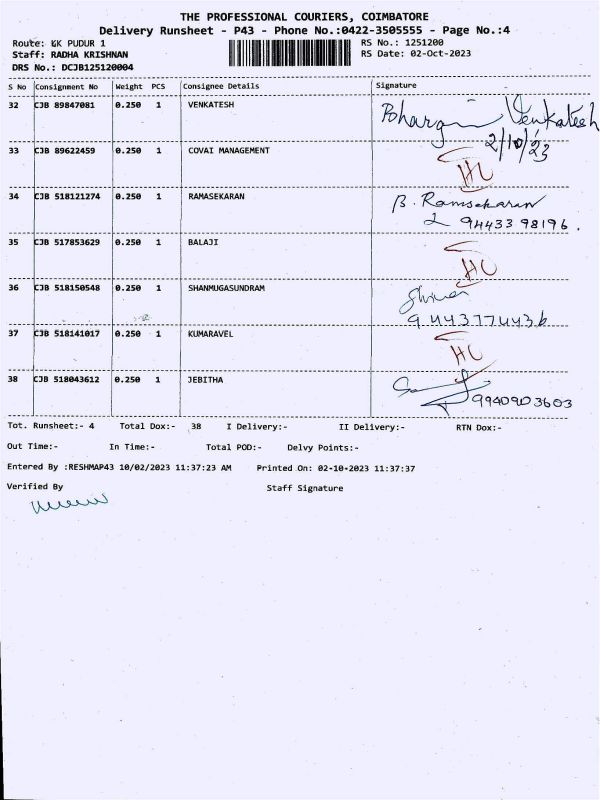 THE PROFESSIONAL COURIERS, COIMBATORE
Delivery Runsheet - P43 - Phone No.:0422-3505555 - Page No.:4
Route: KK PUDUR 1
RS No.: 1251200
Staff: RADHA KRISHNAN
RS Date: 02-Oct-2023
DRS No.: DCJB125120004
S No Consignment No Weight PCS Consignee Details Signature
32 CJB 89847081 0.250 1 VENKATESH Bhargavi Venkatesh
2/10/23
33 CJB 89622459 0.250 1 COVAI MANAGEMENT HC
34 CJB 518121274 0.250 1 RAMASEKARAN B. Ramsekaran
94433 98196.
35 CJB 517853629 0.250 1 BALAJI HC
36 CJB 518150548 0.250 1 SHANMUGASUNDRAM
9443774436
37 CJB 518141017 0.250 1 KUMARAVEL HC
38 CJB 518043612 0.250 1 JEBITHA
9940903603
Tot. Runsheet:- 4 Total Dox:- 38 I Delivery:- II Delivery:- RTN Dox:-
Out Time:- In Time:- Total POD:- Delvy Points:-
Entered By :RESHMAP43 10/02/2023 11:37:23 AM Printed On: 02-10-2023 11:37:37
Verified By Staff Signature